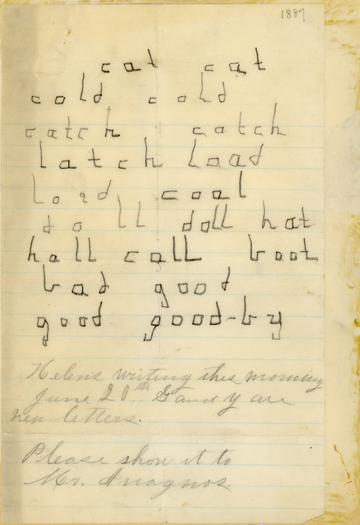 1887
cat cat
cold cold
catch catch
latch load
load coal
doll doll hat
hall call boot
bad good
good good-by
Helen's writing this morning
June 20th G and y are
new letters.
Please show it to
Mr. Anagnos.